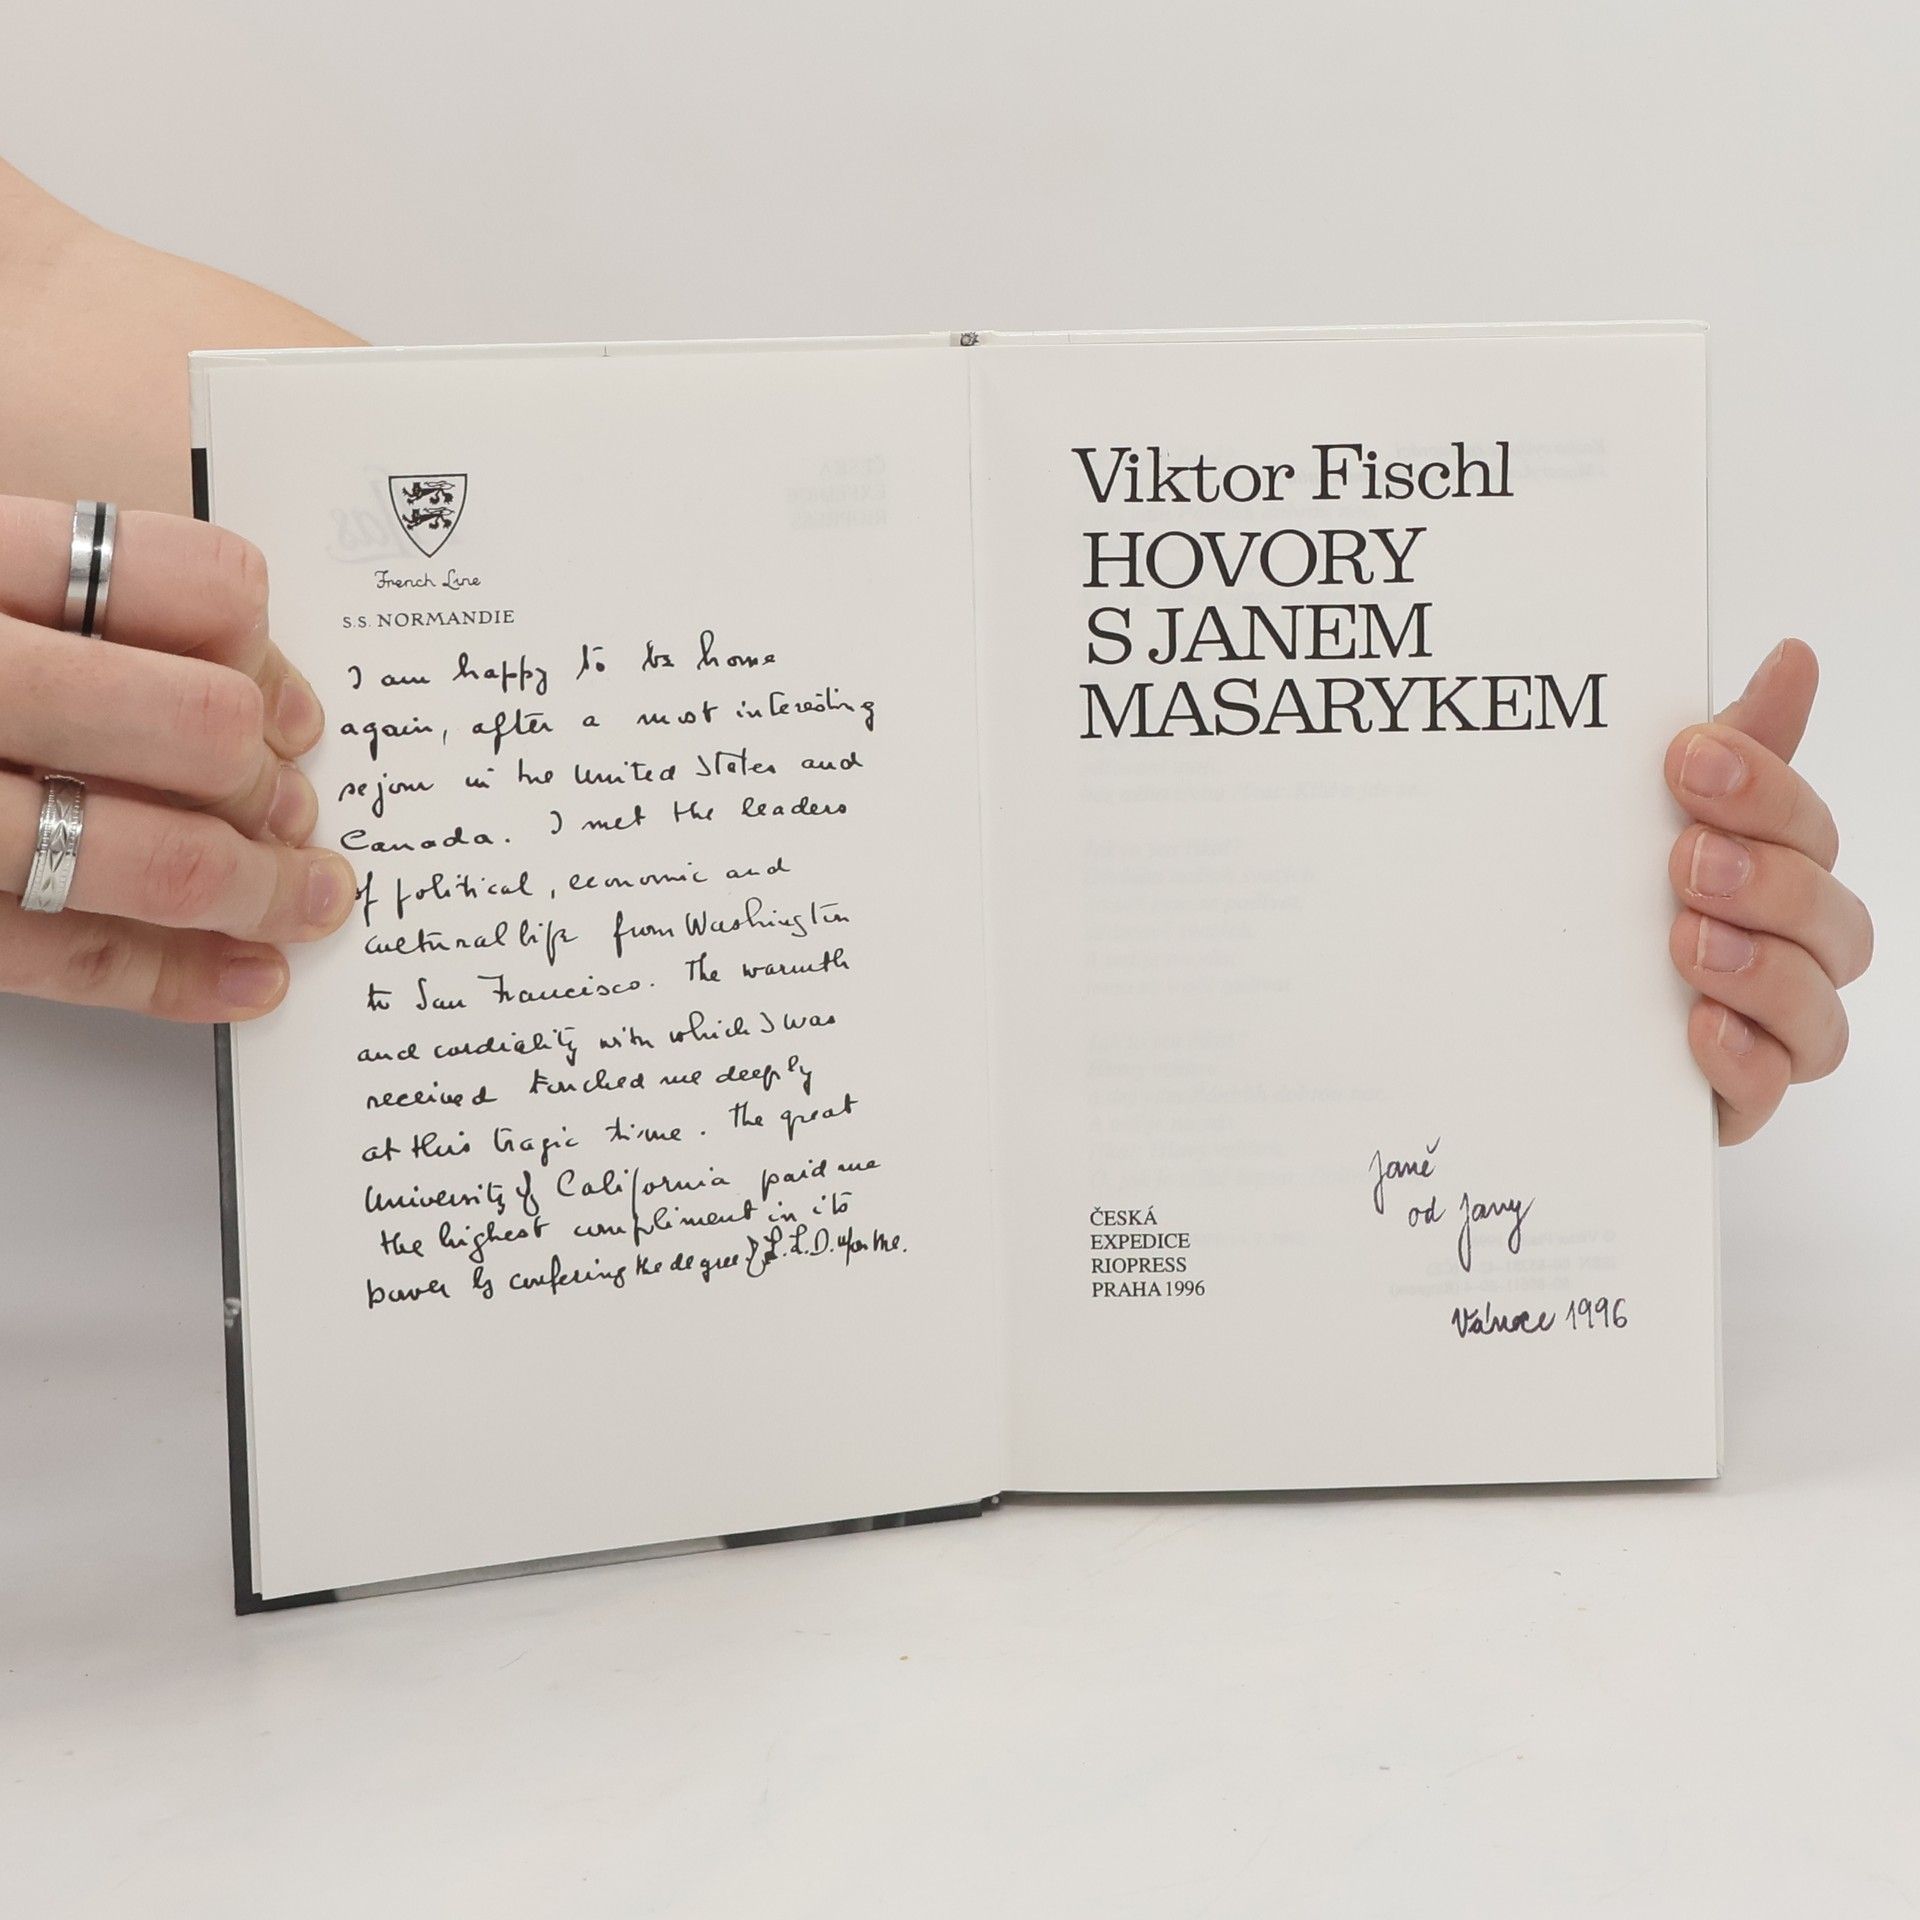 French Line
S.S. NORMANDIE
I am happy to be home
again, after a most interesting
sejour in the United States and
Canada. I met the leaders
of political, economic and
cultural life from Washington
to San Francisco. The warmth
and cordiality with which I was
received touched me deeply
at this tragic time. The great
University of California paid me
the highest compliment in its
power by confering the degree of L.L.D. upon me.
Viktor Fischl
HOVORY
S JANEM
MASARYKEM
ČESKÁ
EXPEDICE
RIOPRESS
PRAHA 1996
Janě
od Jany
Vánoce 1996